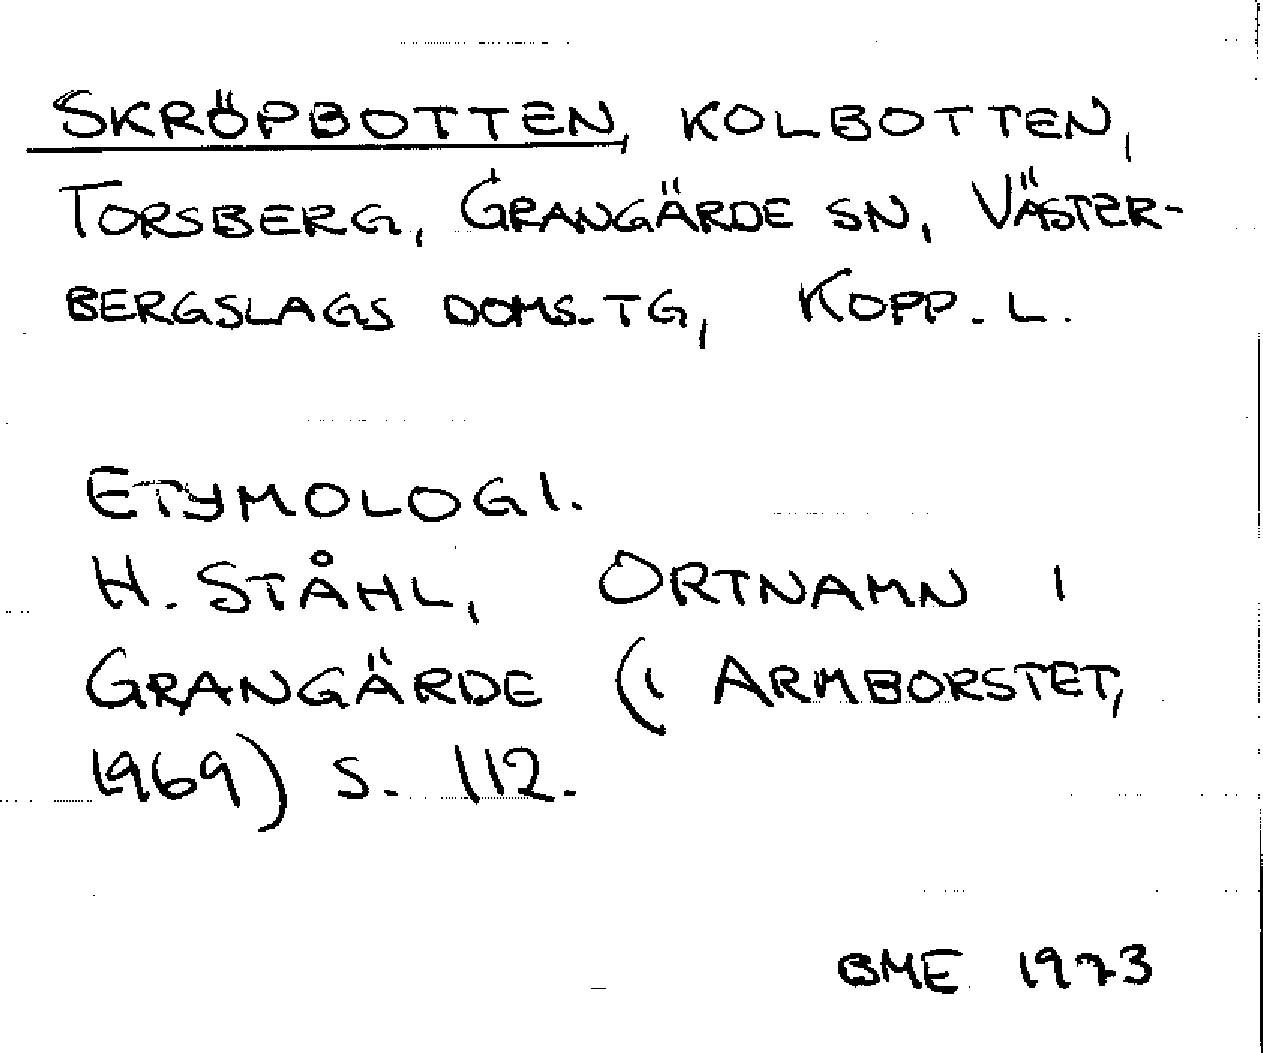 SKRÖPBOTTEN, KOLBOTTEN,
TORSBERG, GRANGÄRDE SN, VÄSTER-
BERGSLAGS DOMS.TG, KOPP. L.
ETYMOLOGI.
H. STÅHL, ORTNAMN I
GRANGÄRDE (I ARMBORSTET,
1969) S. 112.
BME 1973